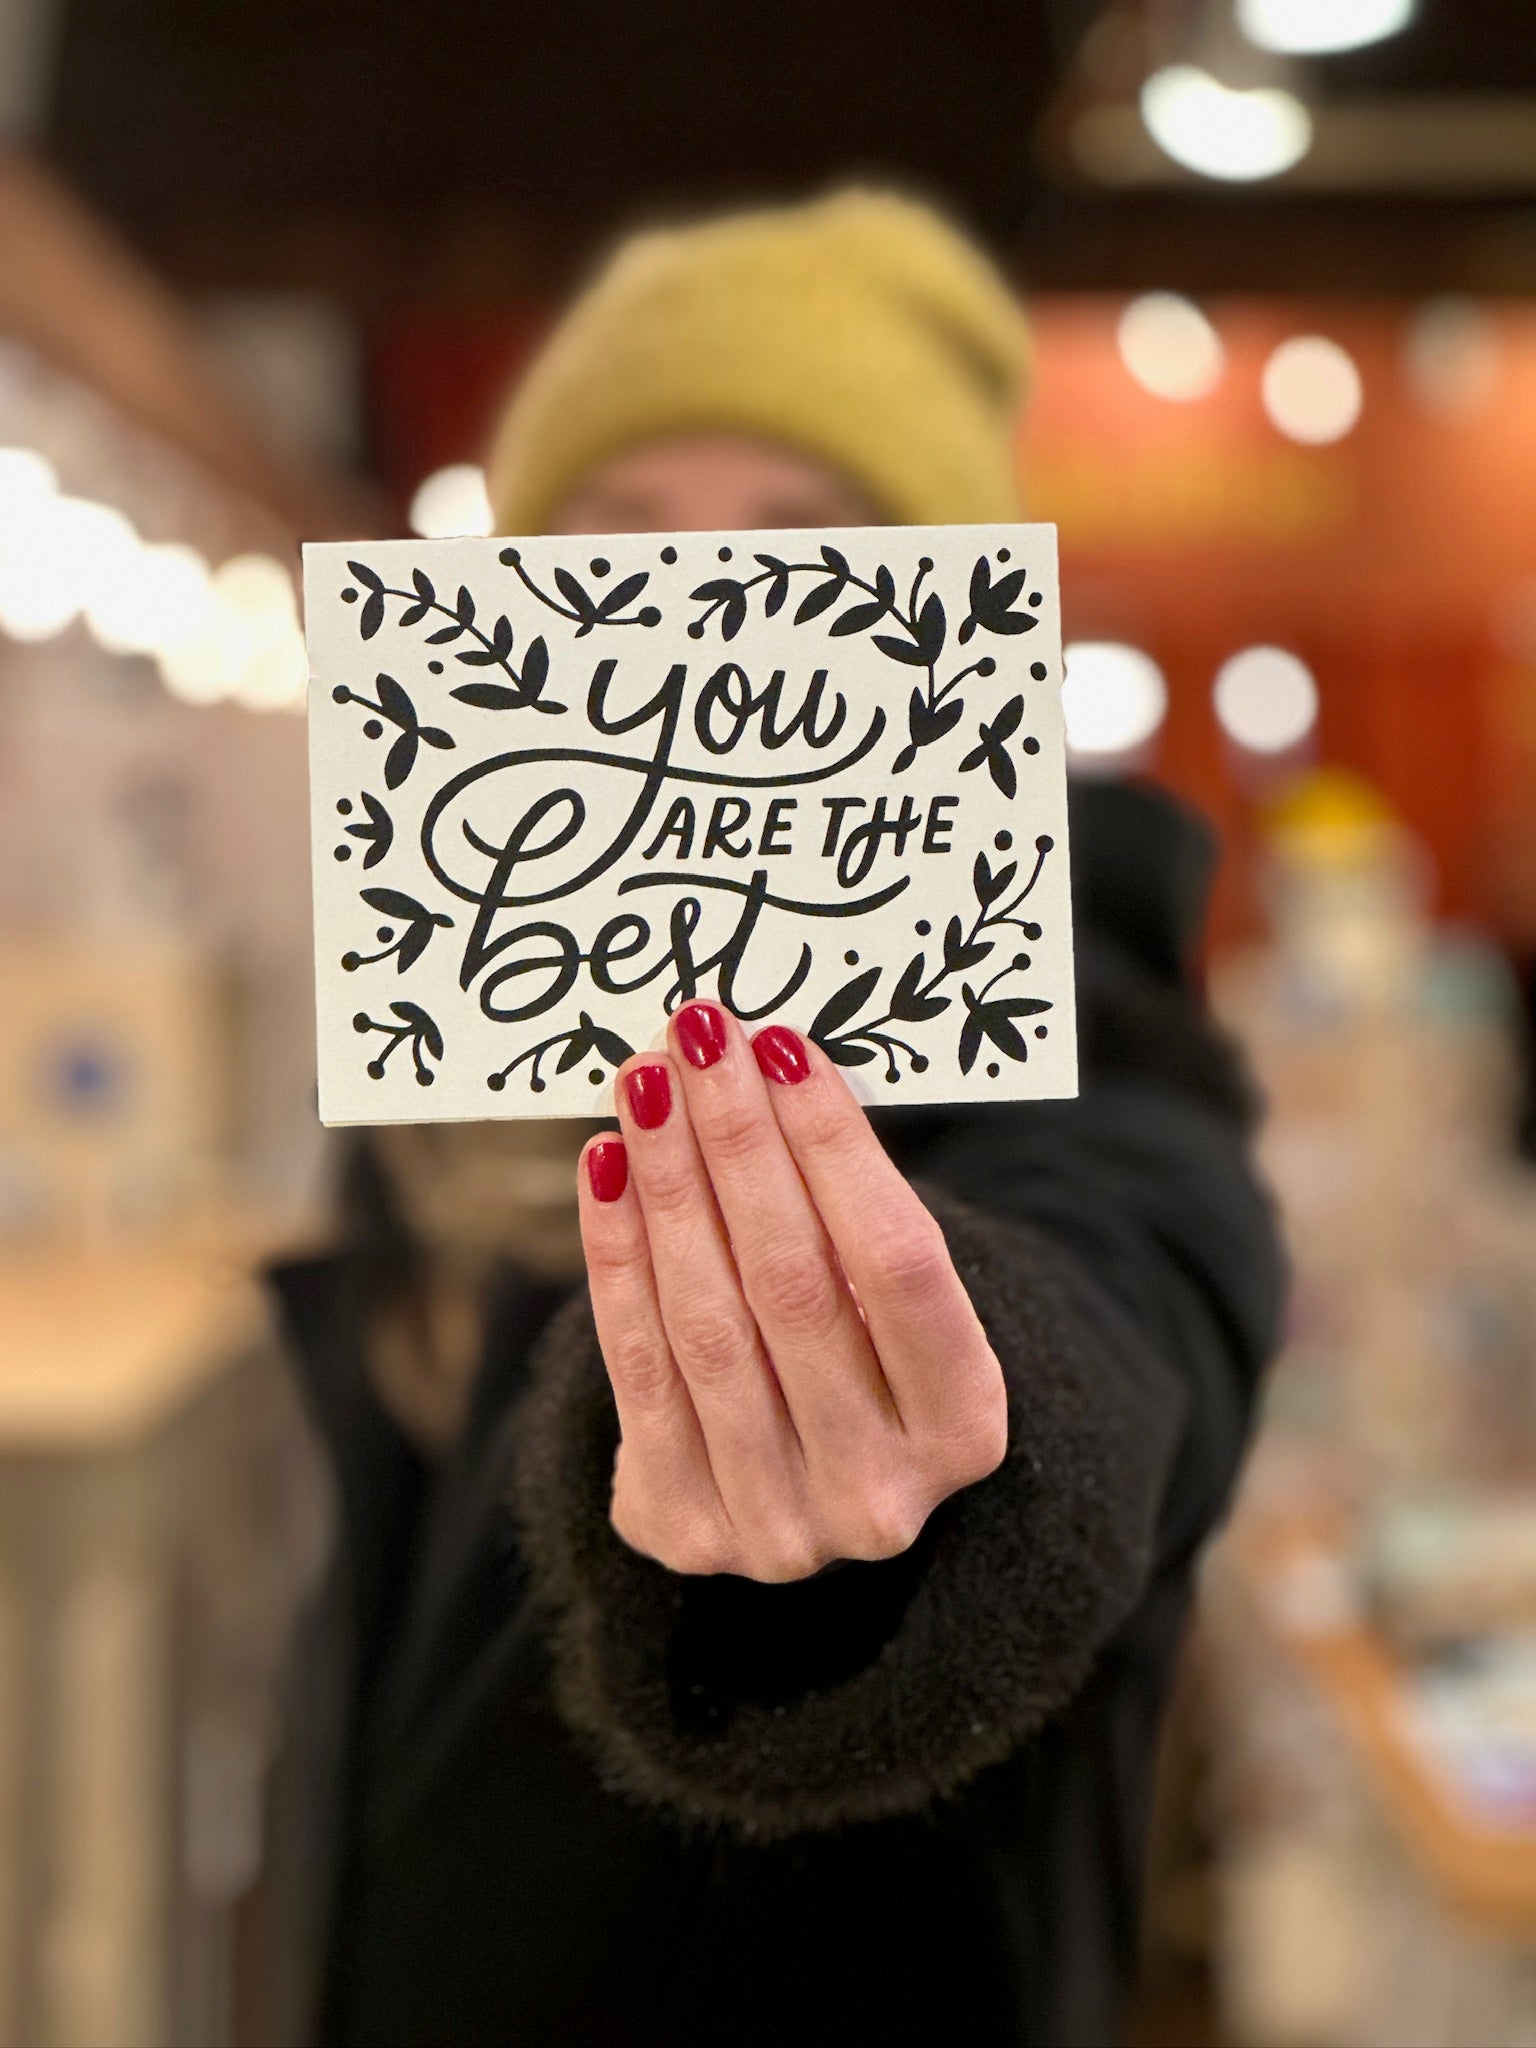 you
ARE THE
best